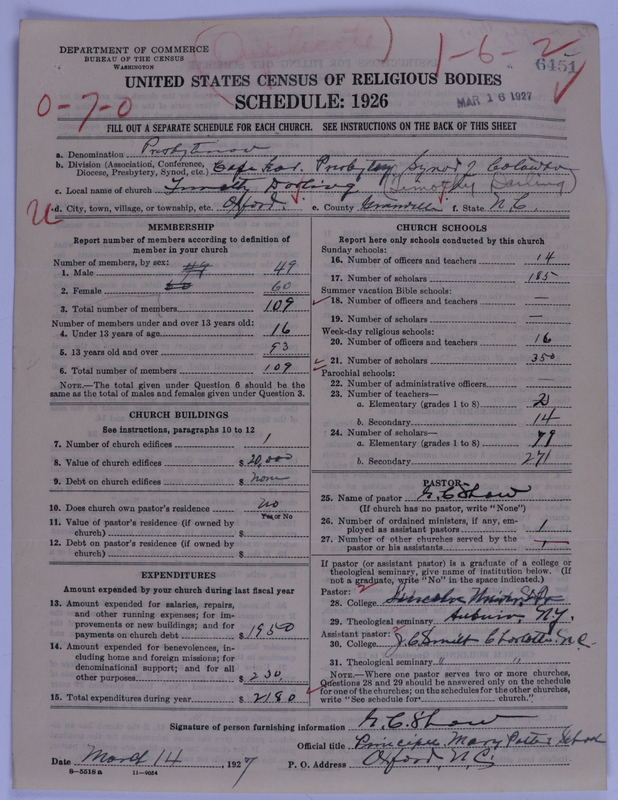 DEPARTMENT OF COMMERCE
BUREAU OF THE CENSUS
WASHINGTON
(Duplicate)
1-6-2
6451
UNITED STATES CENSUS OF RELIGIOUS BODIES
SCHEDULE: 1926
MAR 16 1927
0-7-0
FILL OUT A SEPARATE SCHEDULE FOR EACH CHURCH. SEE INSTRUCTIONS ON THE BACK OF THIS SHEET
a. Denomination Presbyterian
b. Division (Association, Conference, Diocese, Presbytery, Synod, etc.) Cape Fear Presbytery Synod of Catawba
c. Local name of church Timothy Darling (Timothy Darling)
d. City, town, village, or township, etc. Oxford e. County Granville f. State N.C.
MEMBERSHIP
Report number of members according to definition of member in your church
Number of members, by sex:
1. Male 49
2. Female 60
3. Total number of members 109
Number of members under and over 13 years old:
4. Under 13 years of age 16
5. 13 years old and over 93
6. Total number of members 109
NOTE.—The total given under Question 6 should be the same as the total of males and females given under Question 3.
CHURCH BUILDINGS
See instructions, paragraphs 10 to 12
7. Number of church edifices 1
8. Value of church edifices $ 20,000
9. Debt on church edifices $ none
10. Does church own pastor's residence no
Yes or No
11. Value of pastor's residence (if owned by church) $
12. Debt on pastor's residence (if owned by church) $
EXPENDITURES
Amount expended by your church during last fiscal year
13. Amount expended for salaries, repairs, and other running expenses; for improvements or new buildings; and for payments on church debt $ 1950
14. Amount expended for benevolences, including home and foreign missions; for denominational support; and for all other purposes $ 230
15. Total expenditures during year $ 2180
CHURCH SCHOOLS
Report here only schools conducted by this church
Sunday schools:
16. Number of officers and teachers 14
17. Number of scholars 185
Summer vacation Bible schools:
18. Number of officers and teachers —
19. Number of scholars —
Week-day religious schools:
20. Number of officers and teachers 16
21. Number of scholars 350
Parochial schools:
22. Number of administrative officers —
23. Number of teachers—
a. Elementary (grades 1 to 8)
b. Secondary 14
24. Number of scholars—
a. Elementary (grades 1 to 8) 79
b. Secondary 271
PASTOR
25. Name of pastor G. C. Shaw
(If church has no pastor, write "None")
26. Number of ordained ministers, if any, employed as assistant pastors 1
27. Number of other churches served by the pastor or his assistants 1
If pastor (or assistant pastor) is a graduate of a college or theological seminary, give name of institution below. (If not a graduate, write "No" in the space indicated.)
Pastor:
28. College Lincoln University Pa
29. Theological seminary Auburn N.Y.
Assistant pastor:
30. College J. C. Smith Charlotte N.C.
31. Theological seminary " "
NOTE.—Where one pastor serves two or more churches, Questions 28 and 29 should be answered only on the schedule for one of the churches; on the schedules for the other churches, write "See schedule for church."
Signature of person furnishing information G. C. Shaw
Official title Principal Mary Potter School
Date March 14 1927 P. O. Address Oxford, N.C.
8-5518a 11-9654